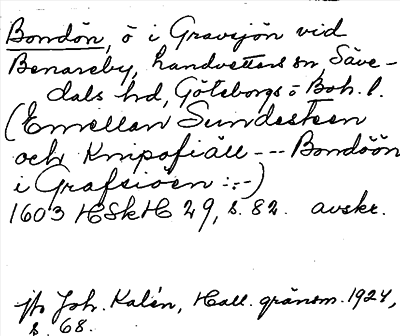 Bondön, ö i Gravsjön vid
Benareby, Landvetters sn, Säve-
dals hd, Göteborgs o Boh. l.
(Emellan Sundesteen
och Knipafiäll --- Bondöön
i Grafsiöen :-)
1603 HSkH 29, s. 82. avskr.
Joh. Kalén, Hall. gränsm. 1924,
s. 68.